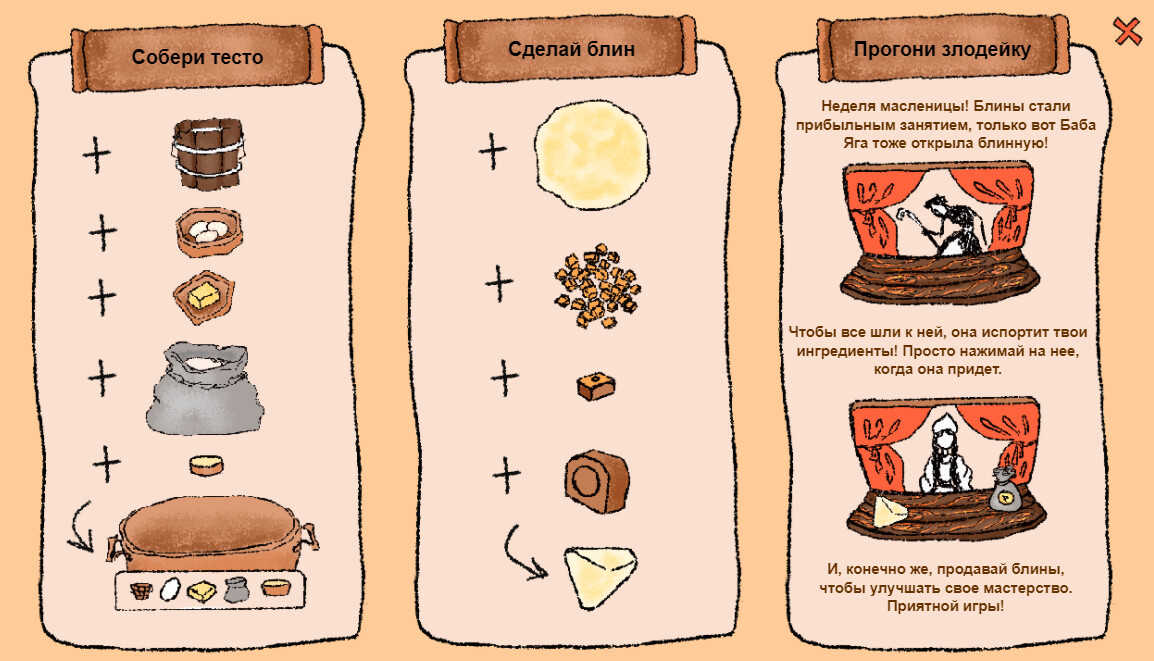 Собери тесто
Сделай блин
Прогони злодейку
Неделя масленицы! Блины стали
прибыльным занятием, только вот Баба
Яга тоже открыла блинную!
Чтобы все шли к ней, она испортит твои
ингредиенты! Просто нажимай на нее,
когда она придет.
И, конечно же, продавай блины,
чтобы улучшать свое мастерство.
Приятной игры!